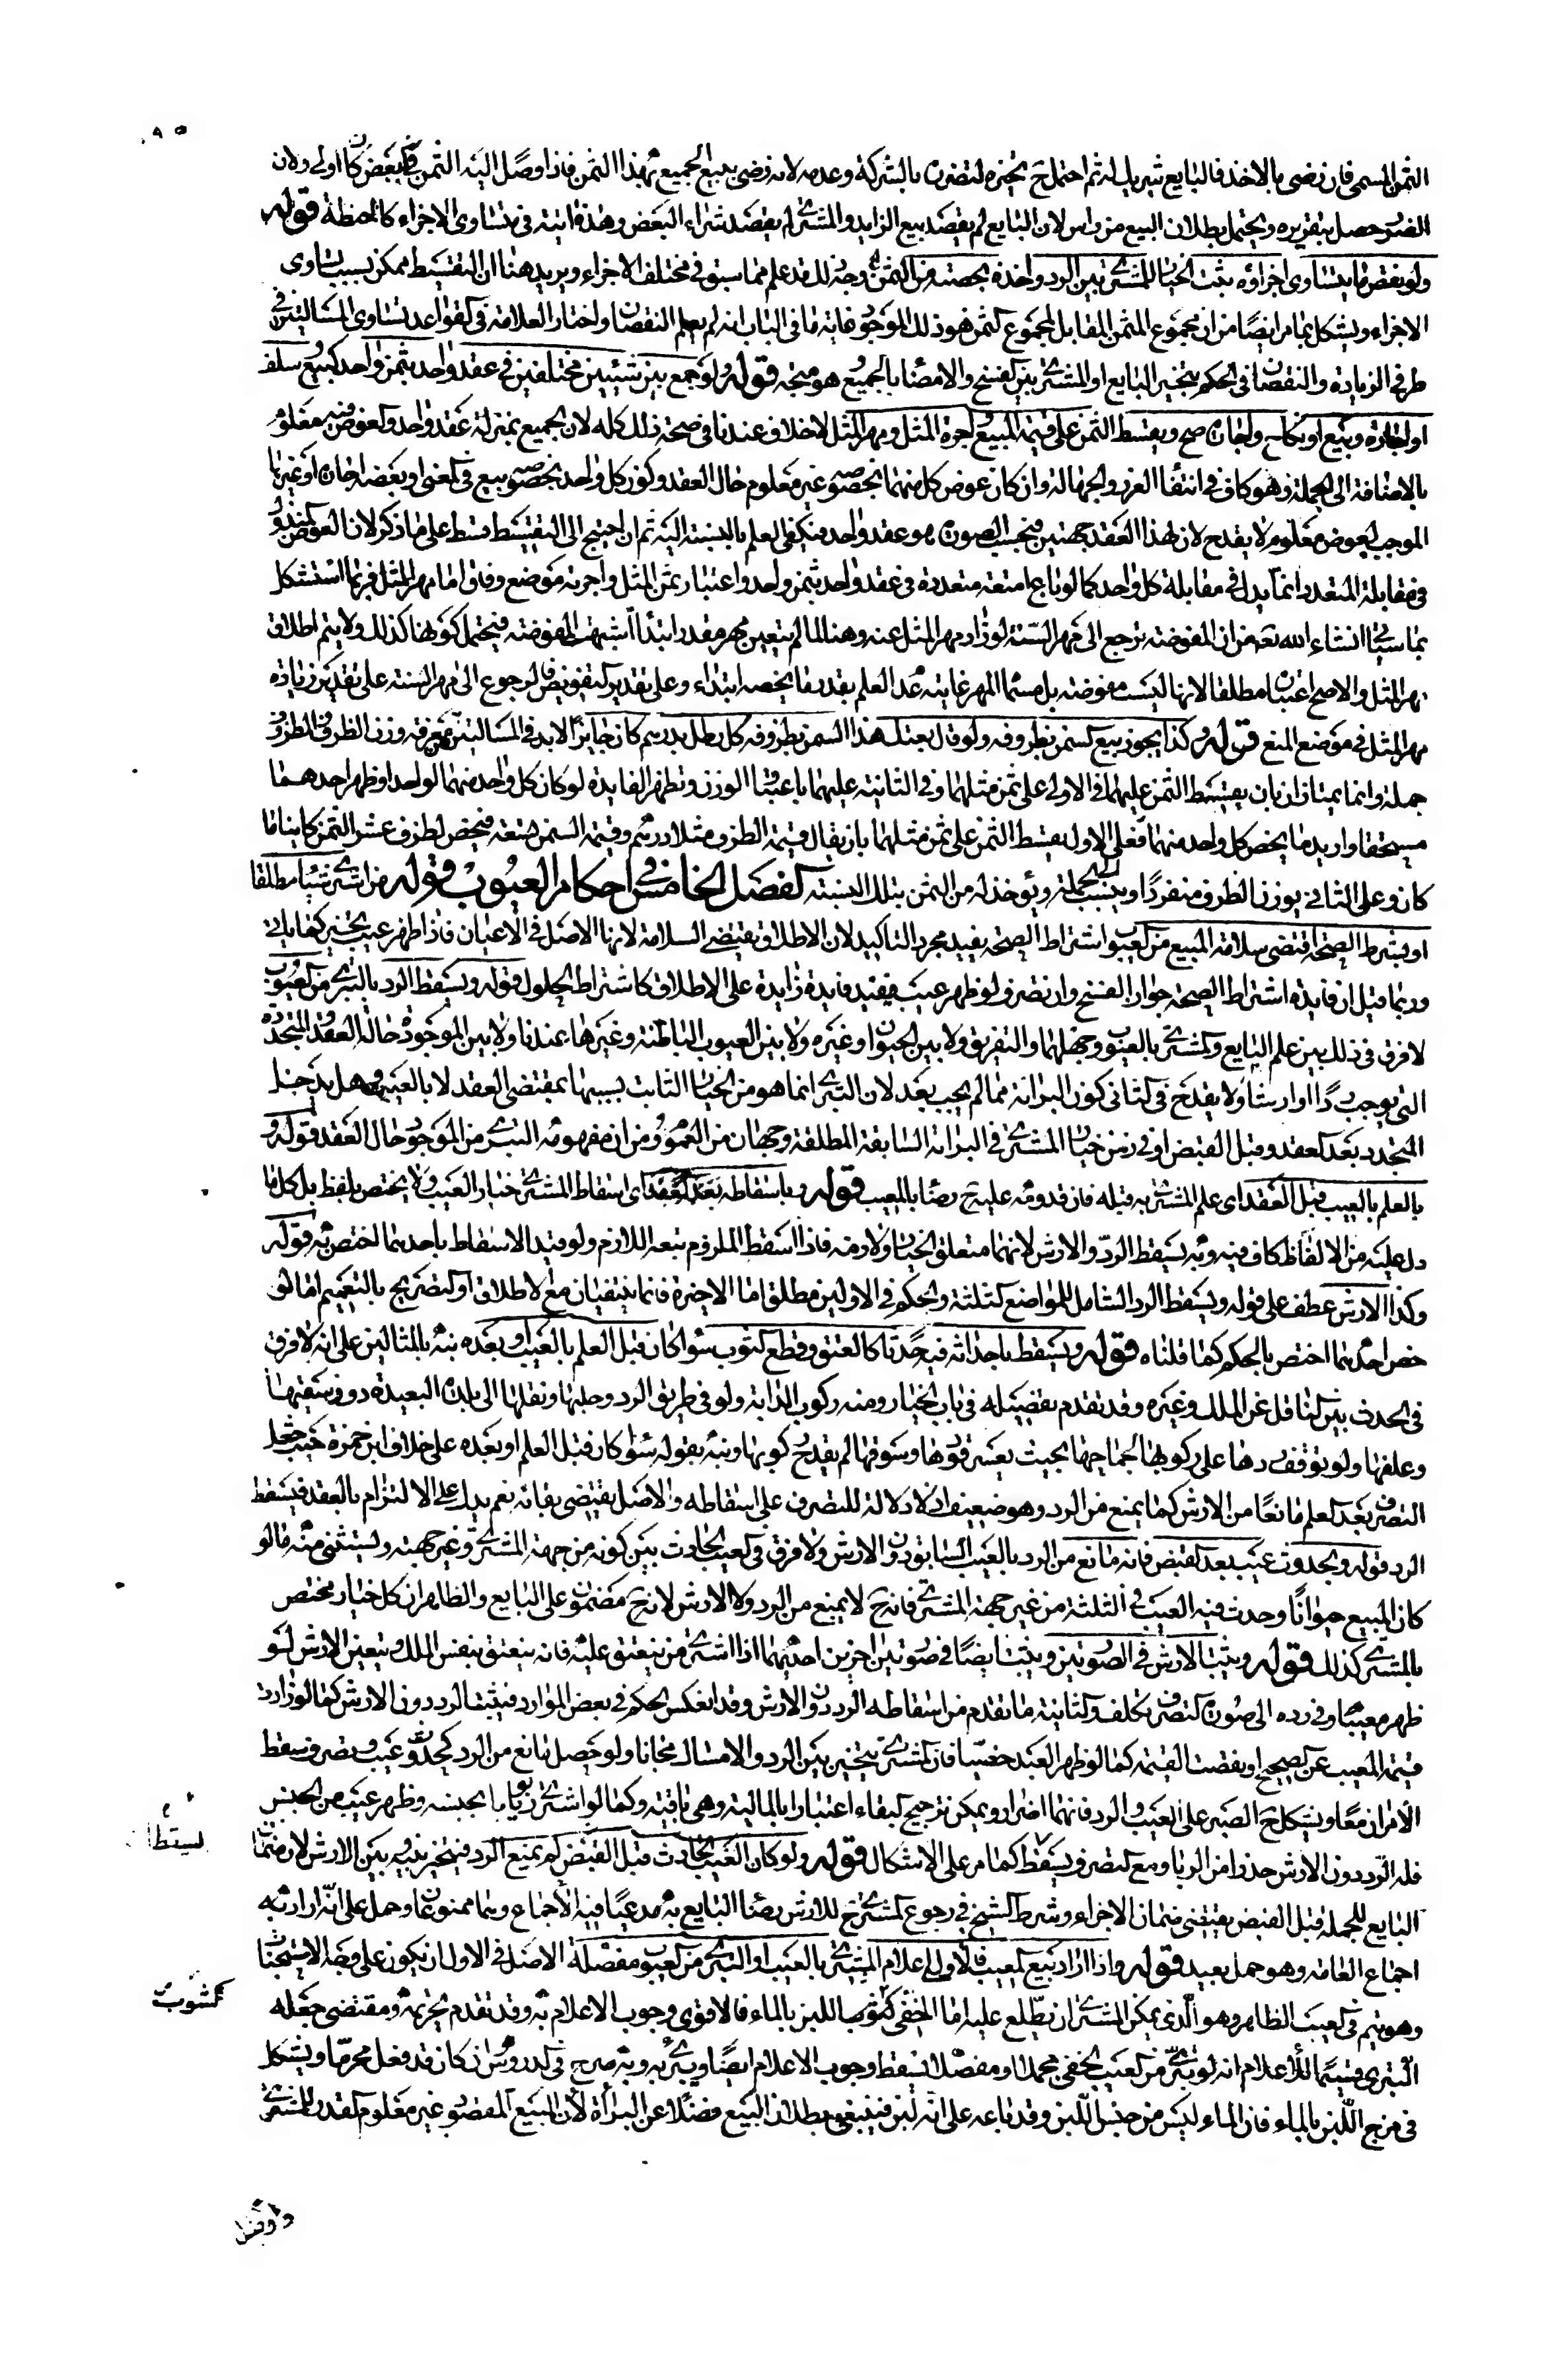 الثمن المسمى فان رضى بالاخذ فالبايع شريك له ثم احتمل ح تخيره لتضرره بالشركة وعدمه لانه رضى ببيع الجميع بهذا الثمن فاذا وصل اليه الثمن فى بعضه كان اولى ولان
الضرر حصل بتقريره ويحتمل بطلان البيع من راس لان البايع لم يقصد بيع الزايد والمشترى لم يقصد شراء البعض وهذه اتية فى متساوى الاجزاء كالحنطة قوله
ولو نقص ما يتساوى اجزاؤه ثبت الخيار للمشترى بين الرد واخذه بحصته من الثمن وجه ذلك قد علم مما سبق فى مختلف الاجزاء ويزيد هنا ان التقسيط ممكن بسبب تساوى
الاجزاء ويشكل بما مر ايضا من ان مجموع المثمن المقابل لمجموع الثمن هو ذلك الموجود غاية ما فى الباب انه لم يعلم النقصان واختار العلامة فى القواعد تساوى المسالتين فى
طرفى الزيادة والنقصان فى الحكم بتخيير البايع او المشترى بين الفسخ والامضا بالجميع هو متجه قوله ولو جمع بين شيئين مختلفين فى عقد واحد بثمن واحد كبيع وسلف
او اجارة وبيع او نكاح واجارة صح ويقسط الثمن على قيمة المبيع واجرة المثل ومهر المثل لا خلاف عندنا فى صحة ذلك كله لان الجميع بمنزلة عقد واحد والعوض فيه معلوم
بالاضافة الى الجملة وهو كاف فى انتفا الغرر والجهالة وان كان عوض كل منهما بخصوصه غير معلوم حال العقد وكون كل واحد بخصوصه بيع فى المعنى او بعضه اجارة او غيرها
الموجب لعوض معلوم لا يقدح لان لهذا العقد جهتين فبحسب الصورة هو عقد واحد فيكفى العلم بالنسبة اليه ثم ان احتيج الى التقسيط قسط على ما ذكر لان العوض المبذول
فى مقابلة المتعدد انما بذل فى مقابلة كل واحد كما لو باع امتعة متعددة فى عقد واحد بثمن واحد واعتبار ثمن المثل واجرته موضع وفاق اما مهر المثل فربما استشكل
بما سياتى انشاء الله تعه من ان المفوضة ترجع الى مهر السنة لو زاد مهر المثل عنه وهنا لما لم يتعين مهر مقدر ابتدا اشبهت المفوضة فيحتمل كونها كذلك ولا يتم اطلاق
مهر المثل والاصح اعتباره مطلقا لانها ليست مفوضة بل مسماة المهر غايته عدم العلم بقدر ما يخصه ابتداء وعلى تقدير التفويض فالرجوع الى مهر السنة على تقدير زيادة
مهر المثل فى موضع المنع قوله وكذا يجوز بيع السمن بظروفه ولو قال بعتك هذا السمن بظروفه كل رطل بدرهم كان جايزا لا بد فى المسالتين من معرفة وزن الظرف والمظروف
جملة وانما يمتازان بان يقسط الثمن عليهما فى الاولى على ثمن مثلهما وفى الثانية عليهما باعتبار الوزن وتظهر الفايدة لو كان كل واحد منهما لواحد او ظهر احدهما
مستحقا واريد ما يخص كل واحد منهما فعلى الاول يقسط الثمن على ثمن مثلهما بان يقال قيمة الظرف مثلا درهم وقيمة السمن تسعة فيخص الظرف عشر الثمن كاينا ما
كان وعلى الثانى يوزن الظرف منفردا وينسب الى الجملة ويؤخذ له من الثمن بتلك النسبة الفصل الخامس فى احكام العيوب قوله من اشترى شيئا مطلقا
او بشرط الصحة اقتضى سلامة المبيع من العيوب اشتراط الصحة يفيد مجرد التاكيد لان الاطلاق يقتضى السلامة لانها الاصل فى الاعيان فاذا ظهر عيب تخير كما ياتى
وربما قيل ان فايدة اشتراط الصحة جواز الفسخ وان تصرف لو ظهر عيب فيفيد فايدة زايدة على الاطلاق كاشتراط الحلول قوله ويسقط الرد بالتبرى من العيوب
لا فرق فى ذلك بين علم البايع والمشترى بالعيوب وجهلهما والتفريق ولا بين الحيوان وغيره ولا بين العيوب الباطنة وغيرها عندنا ولا بين الموجودة حالة العقد والمتجددة
التى توجب ردا او ارشا ولا يقدح فى الثانى كون البراءة مما لم يجب بعد لان التبرى انما هو من الخيار الثابت بسببها بمقتضى العقد لا بالعيب وهل يدخل
المتجدد بعد العقد وقبل القبض او فى زمن خيار المشترى فى البراءة السابقة المطلقة وجهان من العموم ومن ان مفهومه التبرى من الموجود حال العقد قوله و
بالعلم بالعيب قبل العقد اى علم المشترى به قبله فان قدومه عليه ح رضا بالمعيب قوله وباسقاطه بعد العقد اى اسقاط المشترى خيار العيب ولا يختص بلفظ بل كل ما
دل عليه من الالفاظ كاف فيه وبه يسقط الرد والارش لانهما متعلق الخيار ولازمه فاذا اسقط الملزوم تبعه اللازم ولو قيد الاسقاط باحدهما اختص به قوله
وكذا الارش عطف على قوله ويسقط الرد الشامل للمواضع الثلثة والحكم فى الاولين مطلق اما الاخيرة فانما ينتفيان مع الاطلاق او التصريح بالتعميم اما لو
خص احدهما اختص بالحكم كما قلناه قوله ويسقط باحداثه فيه حدثا كالعتق وقطع الثوب سواء كان قبل العلم بالعيب او بعده نبه بالمثالين على انه لا فرق
فى الحدث بين الناقل عن الملك وغيره وقد تقدم تفصيله فى باب الخيار ومنه ركوب الدابة ولو فى طريق الرد وحلبها ونقلها الى بلده البعيدة دون سقيها
وعلفها ولو توقف ردها على ركوبها لجماحها بحيث يعسر قودها وسوقها لم يقدح ركوبها ونبه بقوله سواء كان قبل العلم او بعده على خلاف ابن حمزة حيث جعل
التصرف بعد العلم مانعا من الارش كما يمنع من الرد وهو ضعيف اذ لا دلالة للتصرف على اسقاطه والاصل يقتضى بقائه نعم يدل على الالتزام بالعقد فيسقط
الرد قوله وبحدوث عيب بعد القبض فانه مانع من الرد بالعيب السابق دون الارش ولا فرق فى العيب الحادث بين كونه من جهة المشترى وغير جهته ويستثنى منه ما لو
كان المبيع حيوانا وحدث فيه العيب فى الثلثة من غير جهة المشترى فانه ح لا يمنع من الرد ولا الارش لانه ح مضمون على البايع والظاهر ان كل خيار مختص
بالمشترى كذلك قوله ويثبت الارش فى الصورتين ويثبت ايضا فى صورتين اخريين احديهما اذا اشترى من ينعتق عليه فانه ينعتق بنفس الملك ويتعين الارش لو
ظهر معيبا وفى رده الى صورة التصرف تكلف والثانية ما تقدم من اسقاطه الرد دون الارش وقد انعكس الحكم فى بعض الموارد فيثبت الرد دون الارش كما لو زادت
قيمة المعيب عن الصحيح او نقصت القيمة كما لو ظهر العبد خصيا فان المشترى يتخير بين الرد والامساك مجانا ولو حصل مانع من الرد كحدوث عيب وتصرف سقط
الامران معا ويشكل ح الصبر على العيب والرد فانهما اضرار ويمكن ترجيح البقاء اعتبارا بالمالية وهى باقية وكما لو اشترى ربويا بجنسه وظهر عيب من الجنس
فله الرد دون الارش حذرا من الربا ومع التصرف يسقط كما مر على الاشكال قوله ولو كان العيب الحادث قبل القبض لم يمنع الرد فيتخير بينه وبين الارش لان ضمان
البايع للجملة قبل القبض يقتضى ضمان الاجزاء وشرط الشيخ فى رجوع المشترى للارش رضا البايع به مدعيا فيه الاجماع وهما ممنوعان وحمل على انه اراد به
اجماع العامة وهو حمل بعيد قوله واذا اراد بيع المعيب فالاولى اعلام المشترى بالعيب او التبرى من العيوب مفصلة الاصل فى الاول ان يكون على وجه الاستحباب
وهو يتم فى العيب الظاهر وهو الذى يمكن المشترى ان يطلع عليه اما الخفى كشوب اللبن بالماء فالاقوى وجوب الاعلام به وقد تقدم تحريمه ومقتضى جعله
التبرى قسيما للاعلام انه لو تبرى من العيب الخفى مجملا او مفصلا سقط وجوب الاعلام ايضا ويبرئ به وبه صرح فى الدروس وان كان قد فعل محرما ويشكل
فى مزج اللبن بالماء فان الماء ليس من جنس اللبن وقد باعه على انه لبن فينبغى بطلان البيع فضلا عن البراءة لان المبيع المقصود غير معلوم القدر للمشترى
يسقط
كشوب